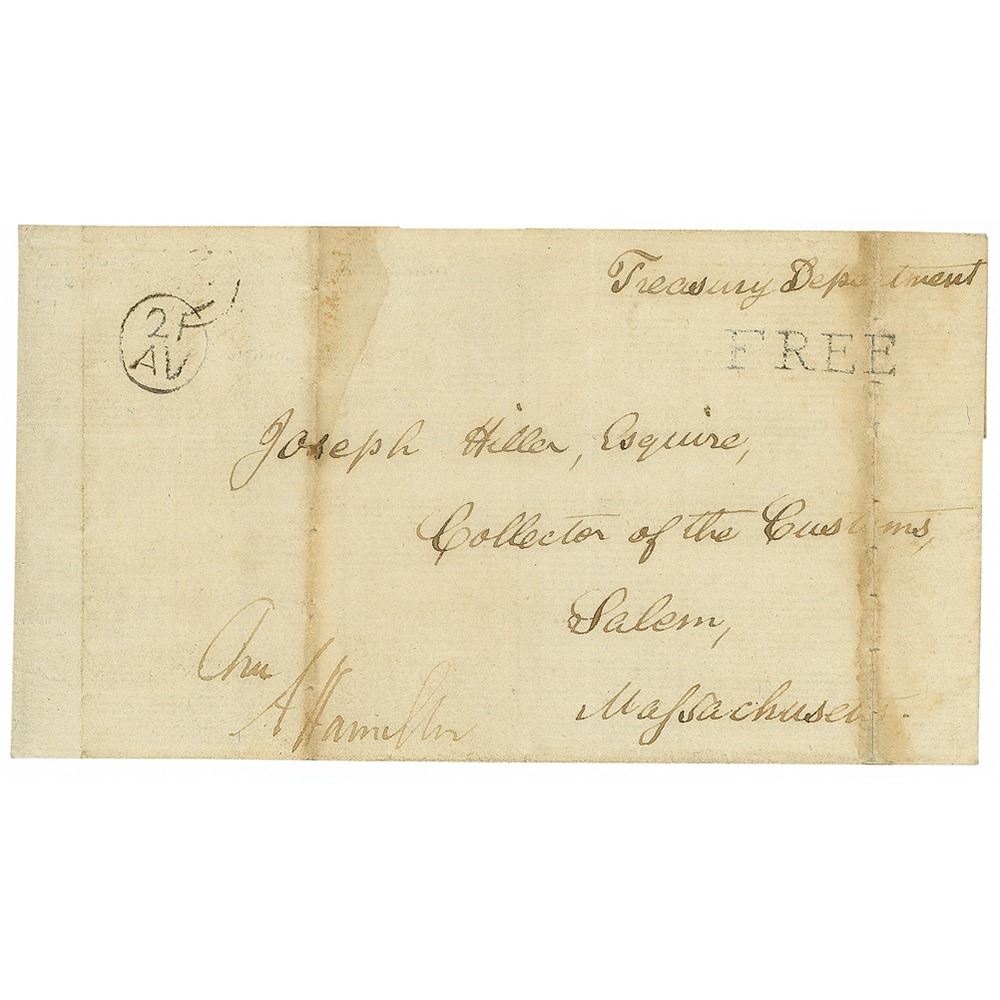 Treasury Department
FREE
2F
AV
Joseph Hiller, Esquire,
Collector of the Customs,
Salem,
Maſsachusets.
AHamilton